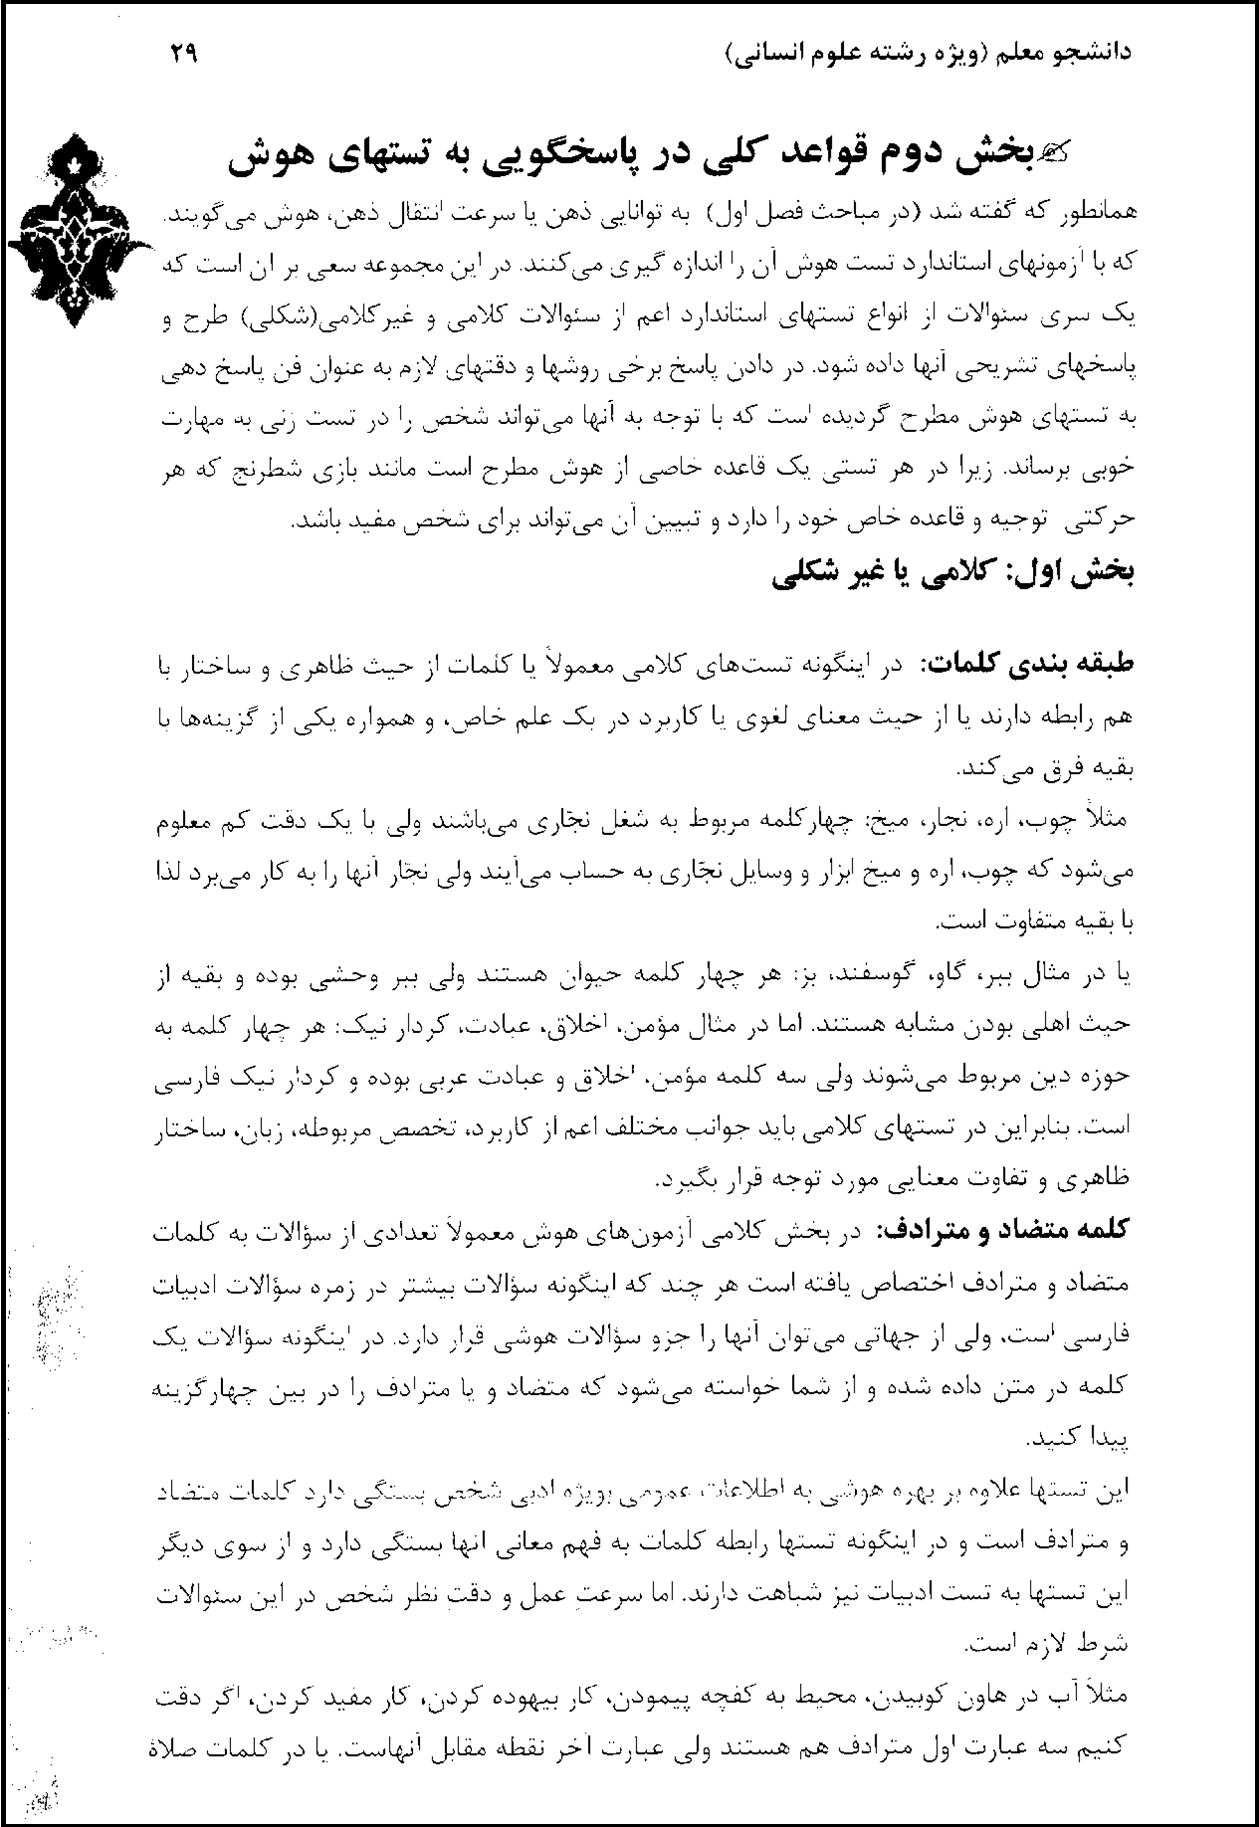 دانشجو معلم (ویژه رشته علوم انسانی) ۲۹
بخش دوم قواعد کلی در پاسخگویی به تستهای هوش
همانطور که گفته شد (در مباحث فصل اول) به توانایی ذهن یا سرعت انتقال ذهن، هوش می‌گویند.
که با آزمونهای استاندارد تست هوش آن را اندازه گیری می‌کنند. در این مجموعه سعی بر ان است که
یک سری سئوالات از انواع تستهای استاندارد اعم از سئوالات کلامی و غیرکلامی(شکلی) طرح و
پاسخهای تشریحی آنها داده شود. در دادن پاسخ برخی روشها و دقتهای لازم به عنوان فن پاسخ دهی
به تستهای هوش مطرح گردیده است که با توجه به آنها می‌تواند شخص را در تست زنی به مهارت
خوبی برساند. زیرا در هر تستی یک قاعده خاصی از هوش مطرح است مانند بازی شطرنج که هر
حرکتی توجیه و قاعده خاص خود را دارد و تبیین آن می‌تواند برای شخص مفید باشد.
بخش اول: کلامی یا غیر شکلی
طبقه بندی کلمات: در اینگونه تست‌های کلامی معمولاً یا کلمات از حیث ظاهری و ساختار با
هم رابطه دارند یا از حیث معنای لغوی یا کاربرد در یک علم خاص، و همواره یکی از گزینه‌ها با
بقیه فرق می‌کند.
مثلاً چوب، اره، نجار، میخ: چهارکلمه مربوط به شغل نجّاری می‌باشند ولی با یک دقت کم معلوم
می‌شود که چوب، اره و میخ ابزار و وسایل نجّاری به حساب می‌آیند ولی نجّار آنها را به کار می‌برد لذا
با بقیه متفاوت است.
یا در مثال ببر، گاو، گوسفند، بز: هر چهار کلمه حیوان هستند ولی ببر وحشی بوده و بقیه از
حیث اهلی بودن مشابه هستند. اما در مثال مؤمن، اخلاق، عبادت، کردار نیک: هر چهار کلمه به
حوزه دین مربوط می‌شوند ولی سه کلمه مؤمن، اخلاق و عبادت عربی بوده و کردار نیک فارسی
است. بنابراین در تستهای کلامی باید جوانب مختلف اعم از کاربرد، تخصص مربوطه، زبان، ساختار
ظاهری و تفاوت معنایی مورد توجه قرار بگیرد.
کلمه متضاد و مترادف: در بخش کلامی آزمون‌های هوش معمولاً تعدادی از سؤالات به کلمات
متضاد و مترادف اختصاص یافته است هر چند که اینگونه سؤالات بیشتر در زمره سؤالات ادبیات
فارسی است، ولی از جهاتی می‌توان آنها را جزو سؤالات هوشی قرار دارد. در اینگونه سؤالات یک
کلمه در متن داده شده و از شما خواسته می‌شود که متضاد و یا مترادف را در بین چهارگزینه
پیدا کنید.
این تستها علاوه بر بهره هوشی به اطلاعات عمومی بویژه ادبی شخص بستگی دارد کلمات متضاد
و مترادف است و در اینگونه تستها رابطه کلمات به فهم معانی انها بستگی دارد و از سوی دیگر
این تستها به تست ادبیات نیز شباهت دارند. اما سرعتِ عمل و دقتِ نظر شخص در این سئوالات
شرط لازم است.
مثلاً آب در هاون کوبیدن، محیط به کفچه پیمودن، کار بیهوده کردن، کار مفید کردن، اگر دقت
کنیم سه عبارت اول مترادف هم هستند ولی عبارت آخر نقطه مقابل آنهاست. یا در کلمات صلاة